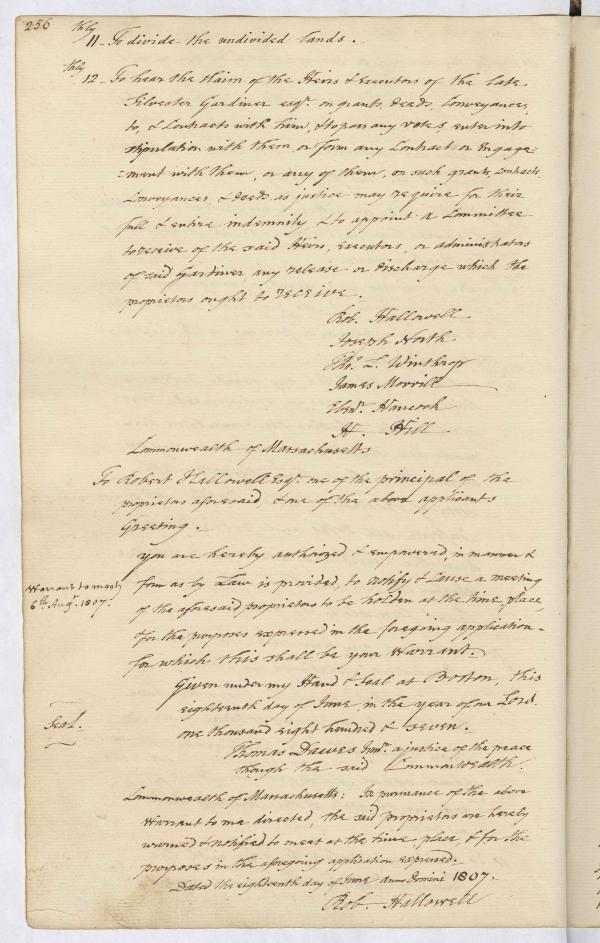 256
11thly - To divide the undivided lands.
12thly - To hear the Claim of the Heirs & Executors of the late
Silvester Gardiner esqr. on grants, deeds, Conveyances
to, & Contracts with him, & to pass any votes, enter into
stipulation with them, or form any Contract or Engage-
-ment with them, or any of them, on such grants, contracts
Conveyances & deeds as justice may require for their
full & entire indemnity & to appoint a Committee
to receive of the said Heirs, executors, or administrators
of said Gardiner any release or discharge which the
proprietors ought to receive.
Rob. Hallowell
Joseph North
Tho.s L. Winthrop
James Morrill
Ebenr. Hancock
H. Hill
Commonwealth of Massachusetts
To Robert Hallowell Esqr. one of the principal of the
proprietors aforesaid & one of the above applicants
Greeting.
You are hereby authorized & empowered, in manner &
form as by Law is provided, to notify & cause a meeting
Warrant to meet
6th Augt. 1807.
of the aforesaid proprietors to be holden at the time, place,
& for the purposes expressed in the foregoing application -
for which this shall be your Warrant.
Given under my Hand & Seal at Boston, this
eighteenth day of June, in the year of our Lord
Seal.
one thousand eight hundred & seven.
Thomas Dawes Junr. a justice of the peace
though the said Commonwealth.
Commonwealth of Massachusetts: In pursuance of the above
Warrant to me directed, the said proprietors are hereby
warned & notified to meet at the time, place, & for the
purposes in the aforegoing application expressed.
Dated the eighteenth day of June anno Domini 1807.
Rob. Hallowell